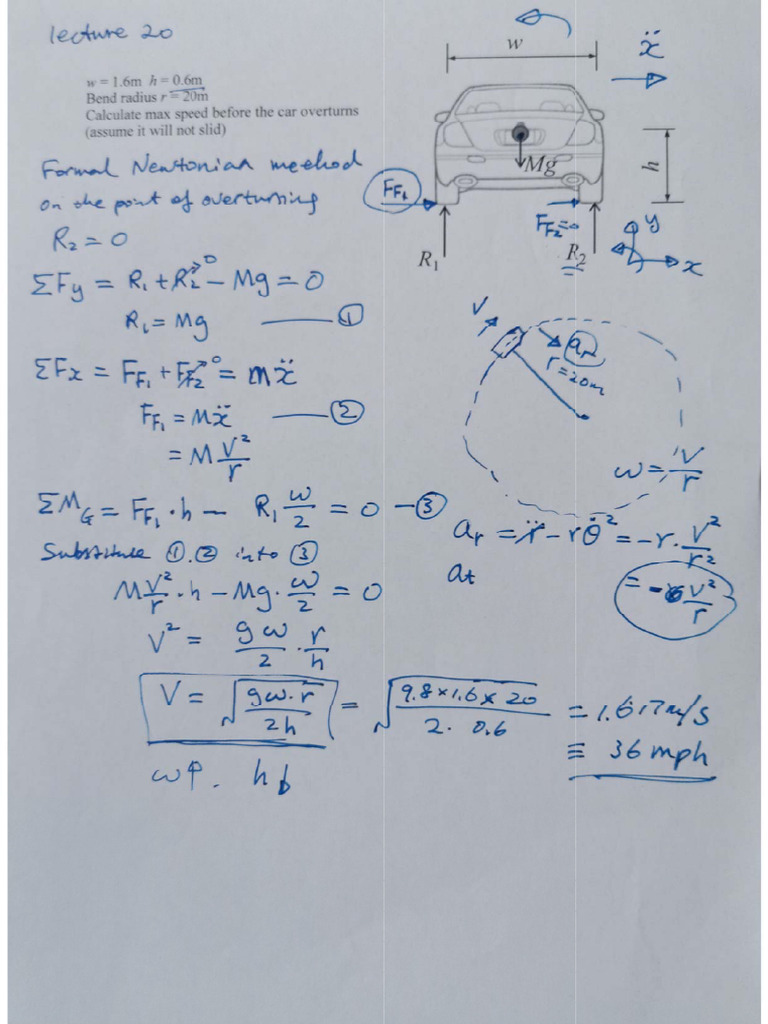 lecture 20
w = 1.6m h = 0.6m
Bend radius r = 20m
Calculate max speed before the car overturns
(assume it will not slid)
w
ẍ
Mg
h
F_F1
F_F2=0
R₁
R₂
y
x
Formal Newtonian method
on the point of overturning
R₂ = 0
ΣFy = R₁ + R₂→0 − Mg = 0
R₁ = Mg —— ①
ΣFx = F_F1 + F_F2→0 = mẍ
F_F1 = Mẍ —— ②
= M V²/r
V
ar
r=20m
ω = V/r
ΣM_G = F_F1 · h − R₁ w/2 = 0 — ③
ar = r̈ − rθ̇² = −r · V²/r²
at
= − V²/r
Substitute ①.② into ③
M V²/r · h − Mg · w/2 = 0
V² = gw/2 · r/h
V = √(gw·r/2h) = √(9.8×1.6×20/2. 0.6) = 1.617m/s
≡ 36 mph
w↑. h↓